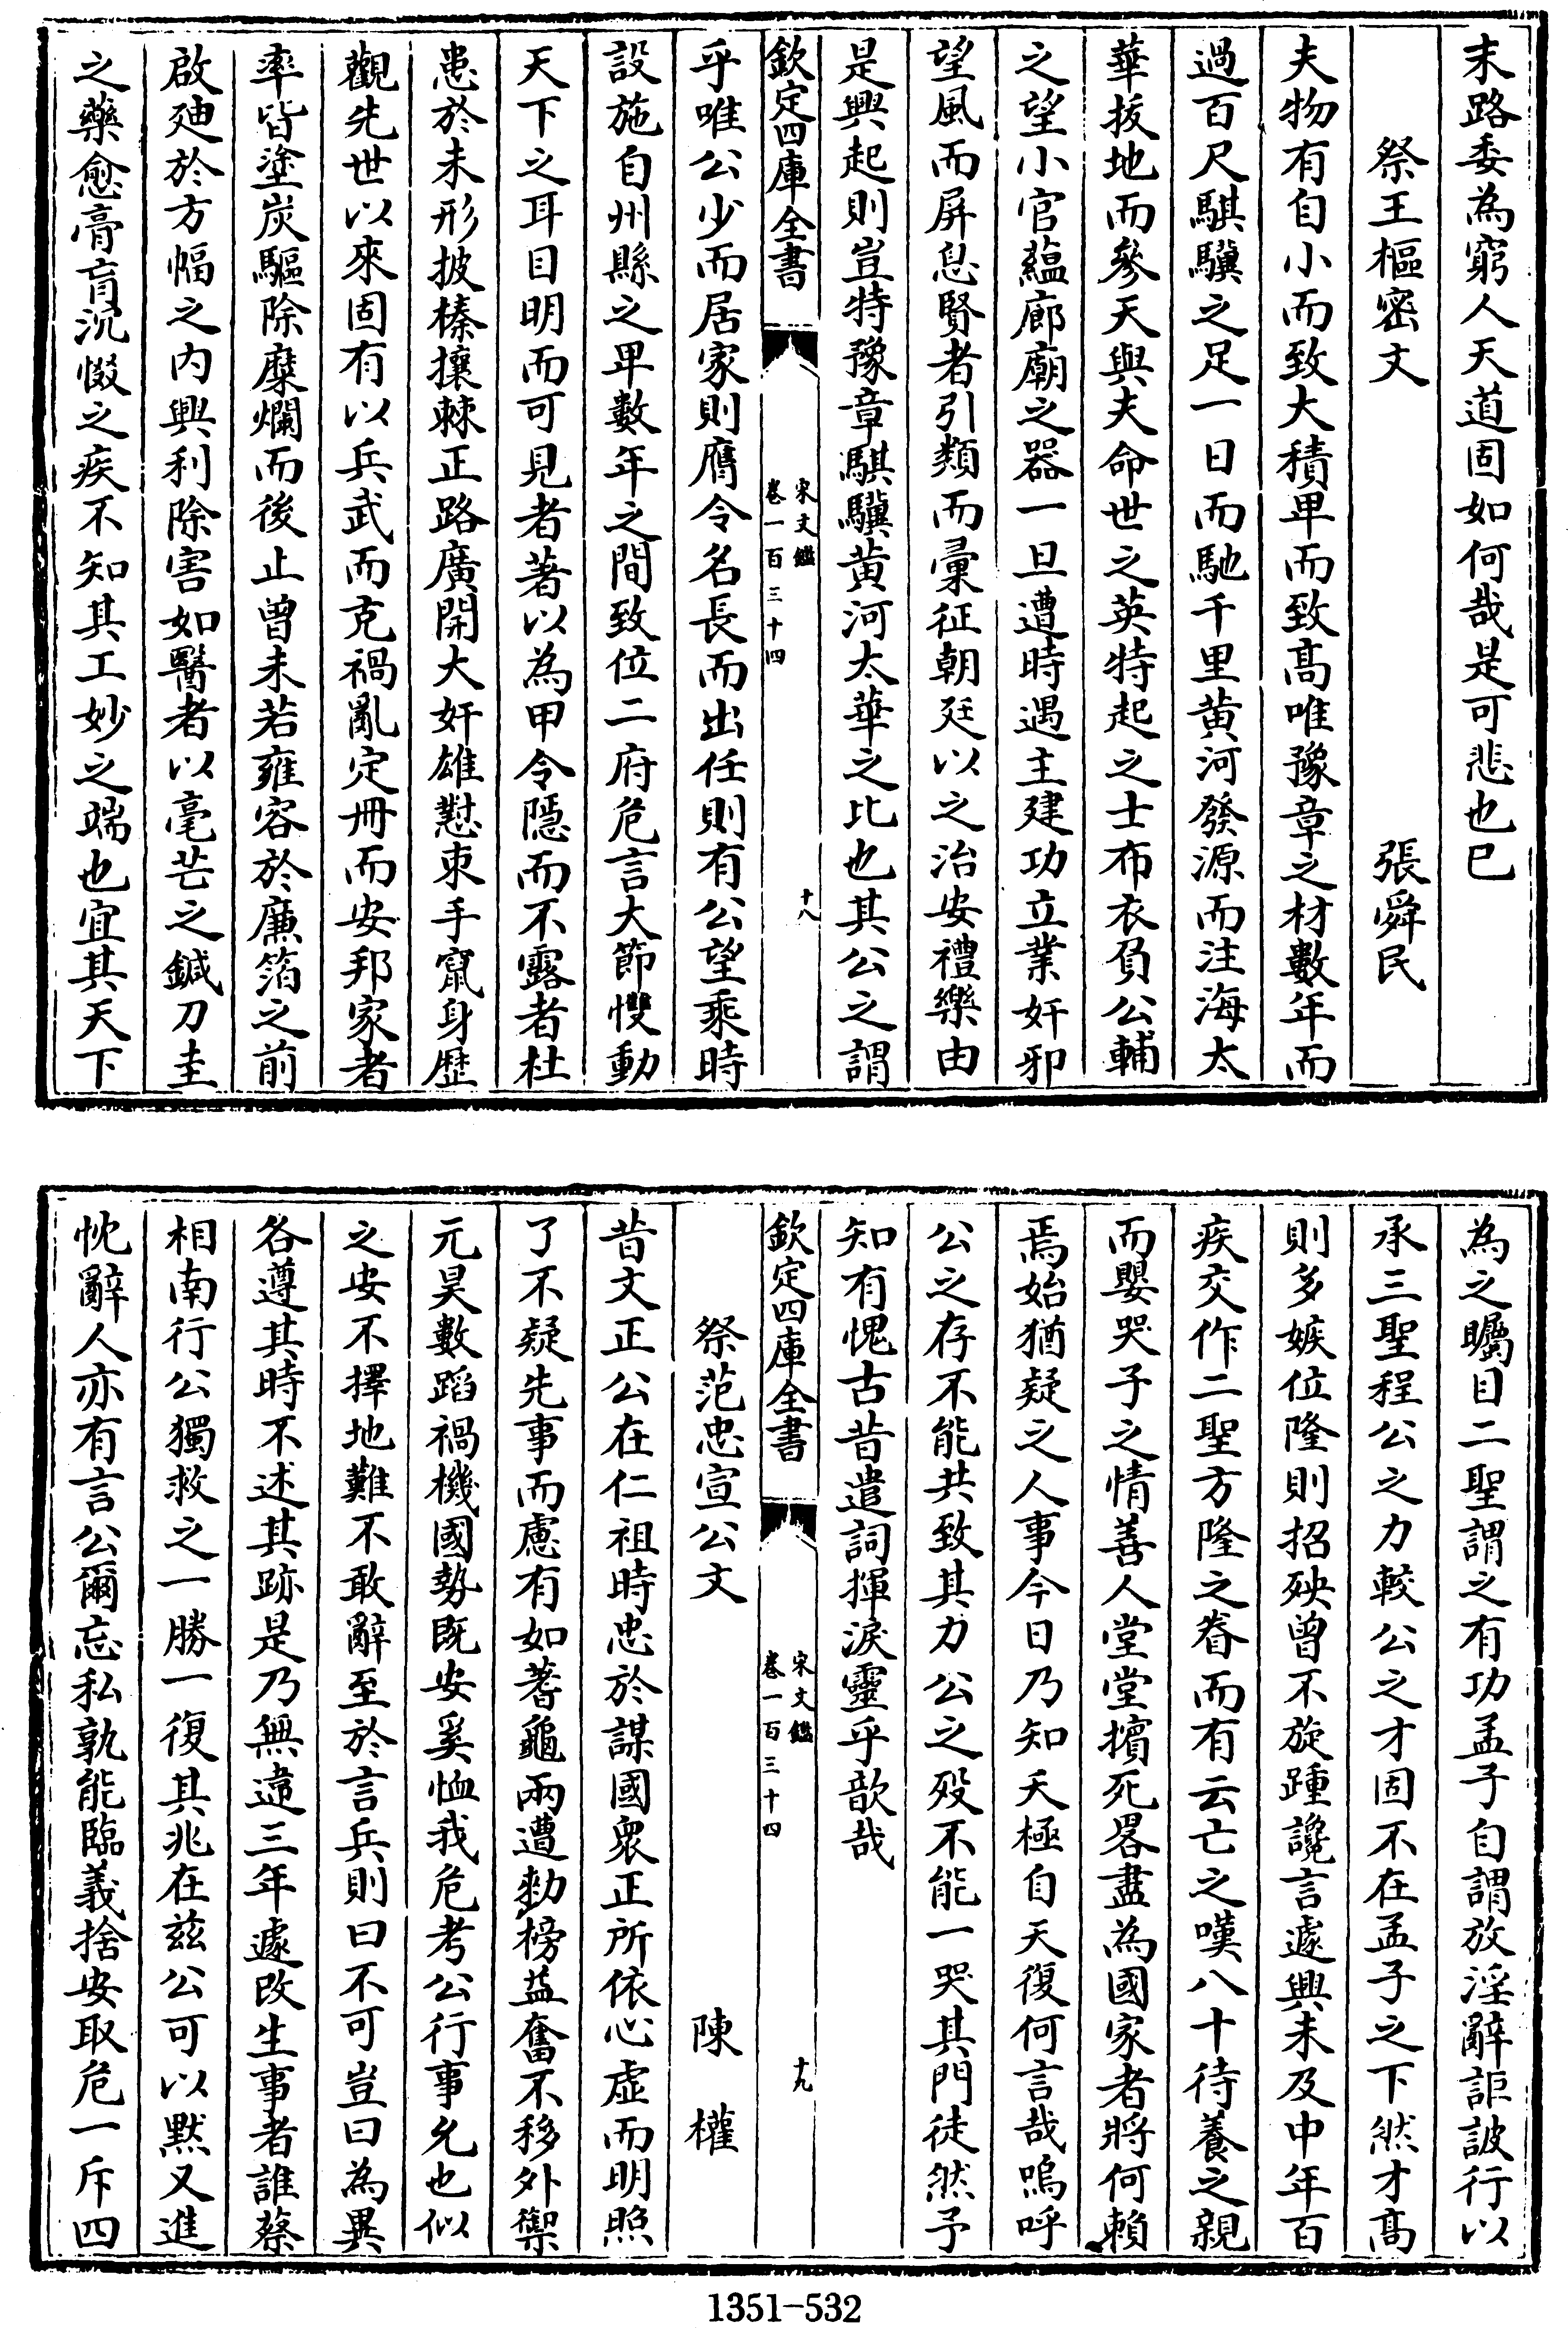 末路委為窮人天道固如何哉是可悲也已
祭王樞密文　張舜民
夫物有自小而致大積卑而致髙唯豫章之材數年而
過百尺騏驥之足一日而馳千里黄河發源而注海太
華拔地而參天與夫命世之英特起之士布衣負公輔
之望小官蘊廊廟之器一旦遭時遇主建功立業奸邪
望風而屏息賢者引類而彚征朝廷以之治安禮樂由
是興起則豈特豫章騏驥黄河太華之比也其公之謂
欽定四庫全書
宋文鑑
卷一百三十四
十八
乎唯公少而居家則膺令名長而出任則有公望乘時
設施自州縣之卑數年之間致位二府危言大節慴動
天下之耳目明而可見者著以為甲令隱而不露者杜
患於未形披榛攘棘正路廣開大奸雄懟束手竄身歴
觀先世以來固有以兵武而克禍亂定冊而安邦家者
率皆塗炭驅除糜爛而後止曽未若雍容於廉箔之前
啟廸於方幅之内興利除害如醫者以毫芒之鍼刀圭
之藥愈膏肓沉惙之疾不知其工妙之端也宜其天下
為之矚目二聖謂之有功孟子自謂放淫辭詎詖行以
承三聖程公之力較公之才固不在孟子之下然才髙
則多嫉位隆則招殃曾不旋踵讒言遽興未及中年百
疾交作二聖方隆之眷而有云亡之嘆八十待養之親
而嬰哭子之情善人堂堂擯死畧盡為國家者將何賴
焉始猶疑之人事今日乃知夭極自天復何言哉嗚呼
公之存不能共致其力公之殁不能一哭其門徒然予
知有愧古昔遣詞揮淚靈乎歆哉
欽定四庫全書
宋文鑑
卷一百三十四
十九
祭范忠宣公文　陳　權
昔文正公在仁祖時忠於謀國衆正所依心虚而明照
了不疑先事而慮有如蓍龜兩遭勅榜益奮不移外禦
元昊數蹈禍機國勢既安奚恤我危考公行事允也似
之安不擇地難不敢辭至於言兵則曰不可豈曰為異
各遵其時不述其跡是乃無違三年遽改生事者誰蔡
相南行公獨救之一勝一復其兆在兹公可以黙又進
忱辭人亦有言公爾忘私孰能臨義捨安取危一斥四
1351-532